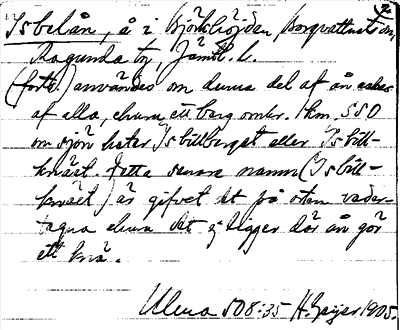 2
Isbelån, å i Björkhöjden, Borgvattnets sn,
Ragunda tg, Jämtl. l.
(forts.) användes om denna del af ån
af alla, ehuru ett berg omkr. 1 km. SSO
om sjön heter Isbillberget eller Isbill-
knäet. Detta senare namn (Isbill-
knäet) är gifvet det på ofvan
ehuru det ej ligger där ån gör
ett knä.
Ulma 508:35 H. Geijer 1905.